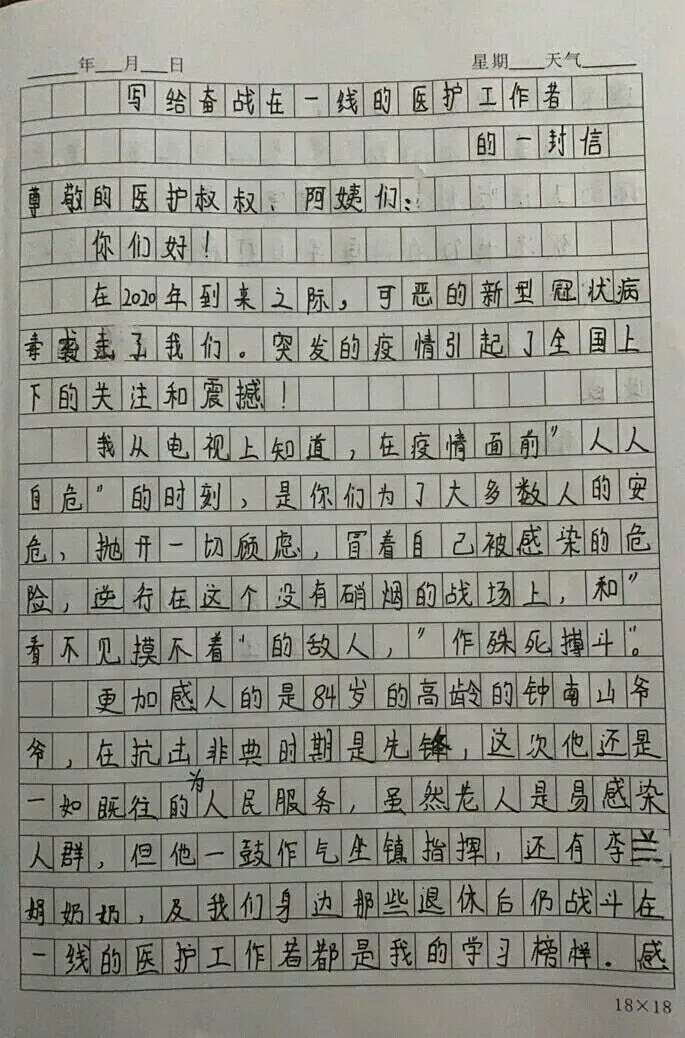 年 月 日 星期 天气
写给奋战在一线的医护工作者
的一封信
尊敬的医护叔叔、阿姨们:
你们好!
在2020年到来之际,可恶的新型冠状病
毒袭击了我们。突发的疫情引起了全国上
下的关注和震撼!
我从电视上知道,在疫情面前"人人
自危"的时刻,是你们为了大多数人的安
危,抛开一切顾虑,冒着自己被感染的危
险,逆行在这个没有硝烟的战场上,和"
看不见摸不着"的敌人,"作殊死搏斗"。
更加感人的是84岁的高龄的钟南山爷
爷,在抗击非典时期是先锋,这次他还是
一如既往的为人民服务,虽然老人是易感染
人群,但他一鼓作气坐镇指挥,还有李兰
娟奶奶,及我们身边那些退休后仍战斗在
一线的医护工作者都是我的学习榜样.感
18×18